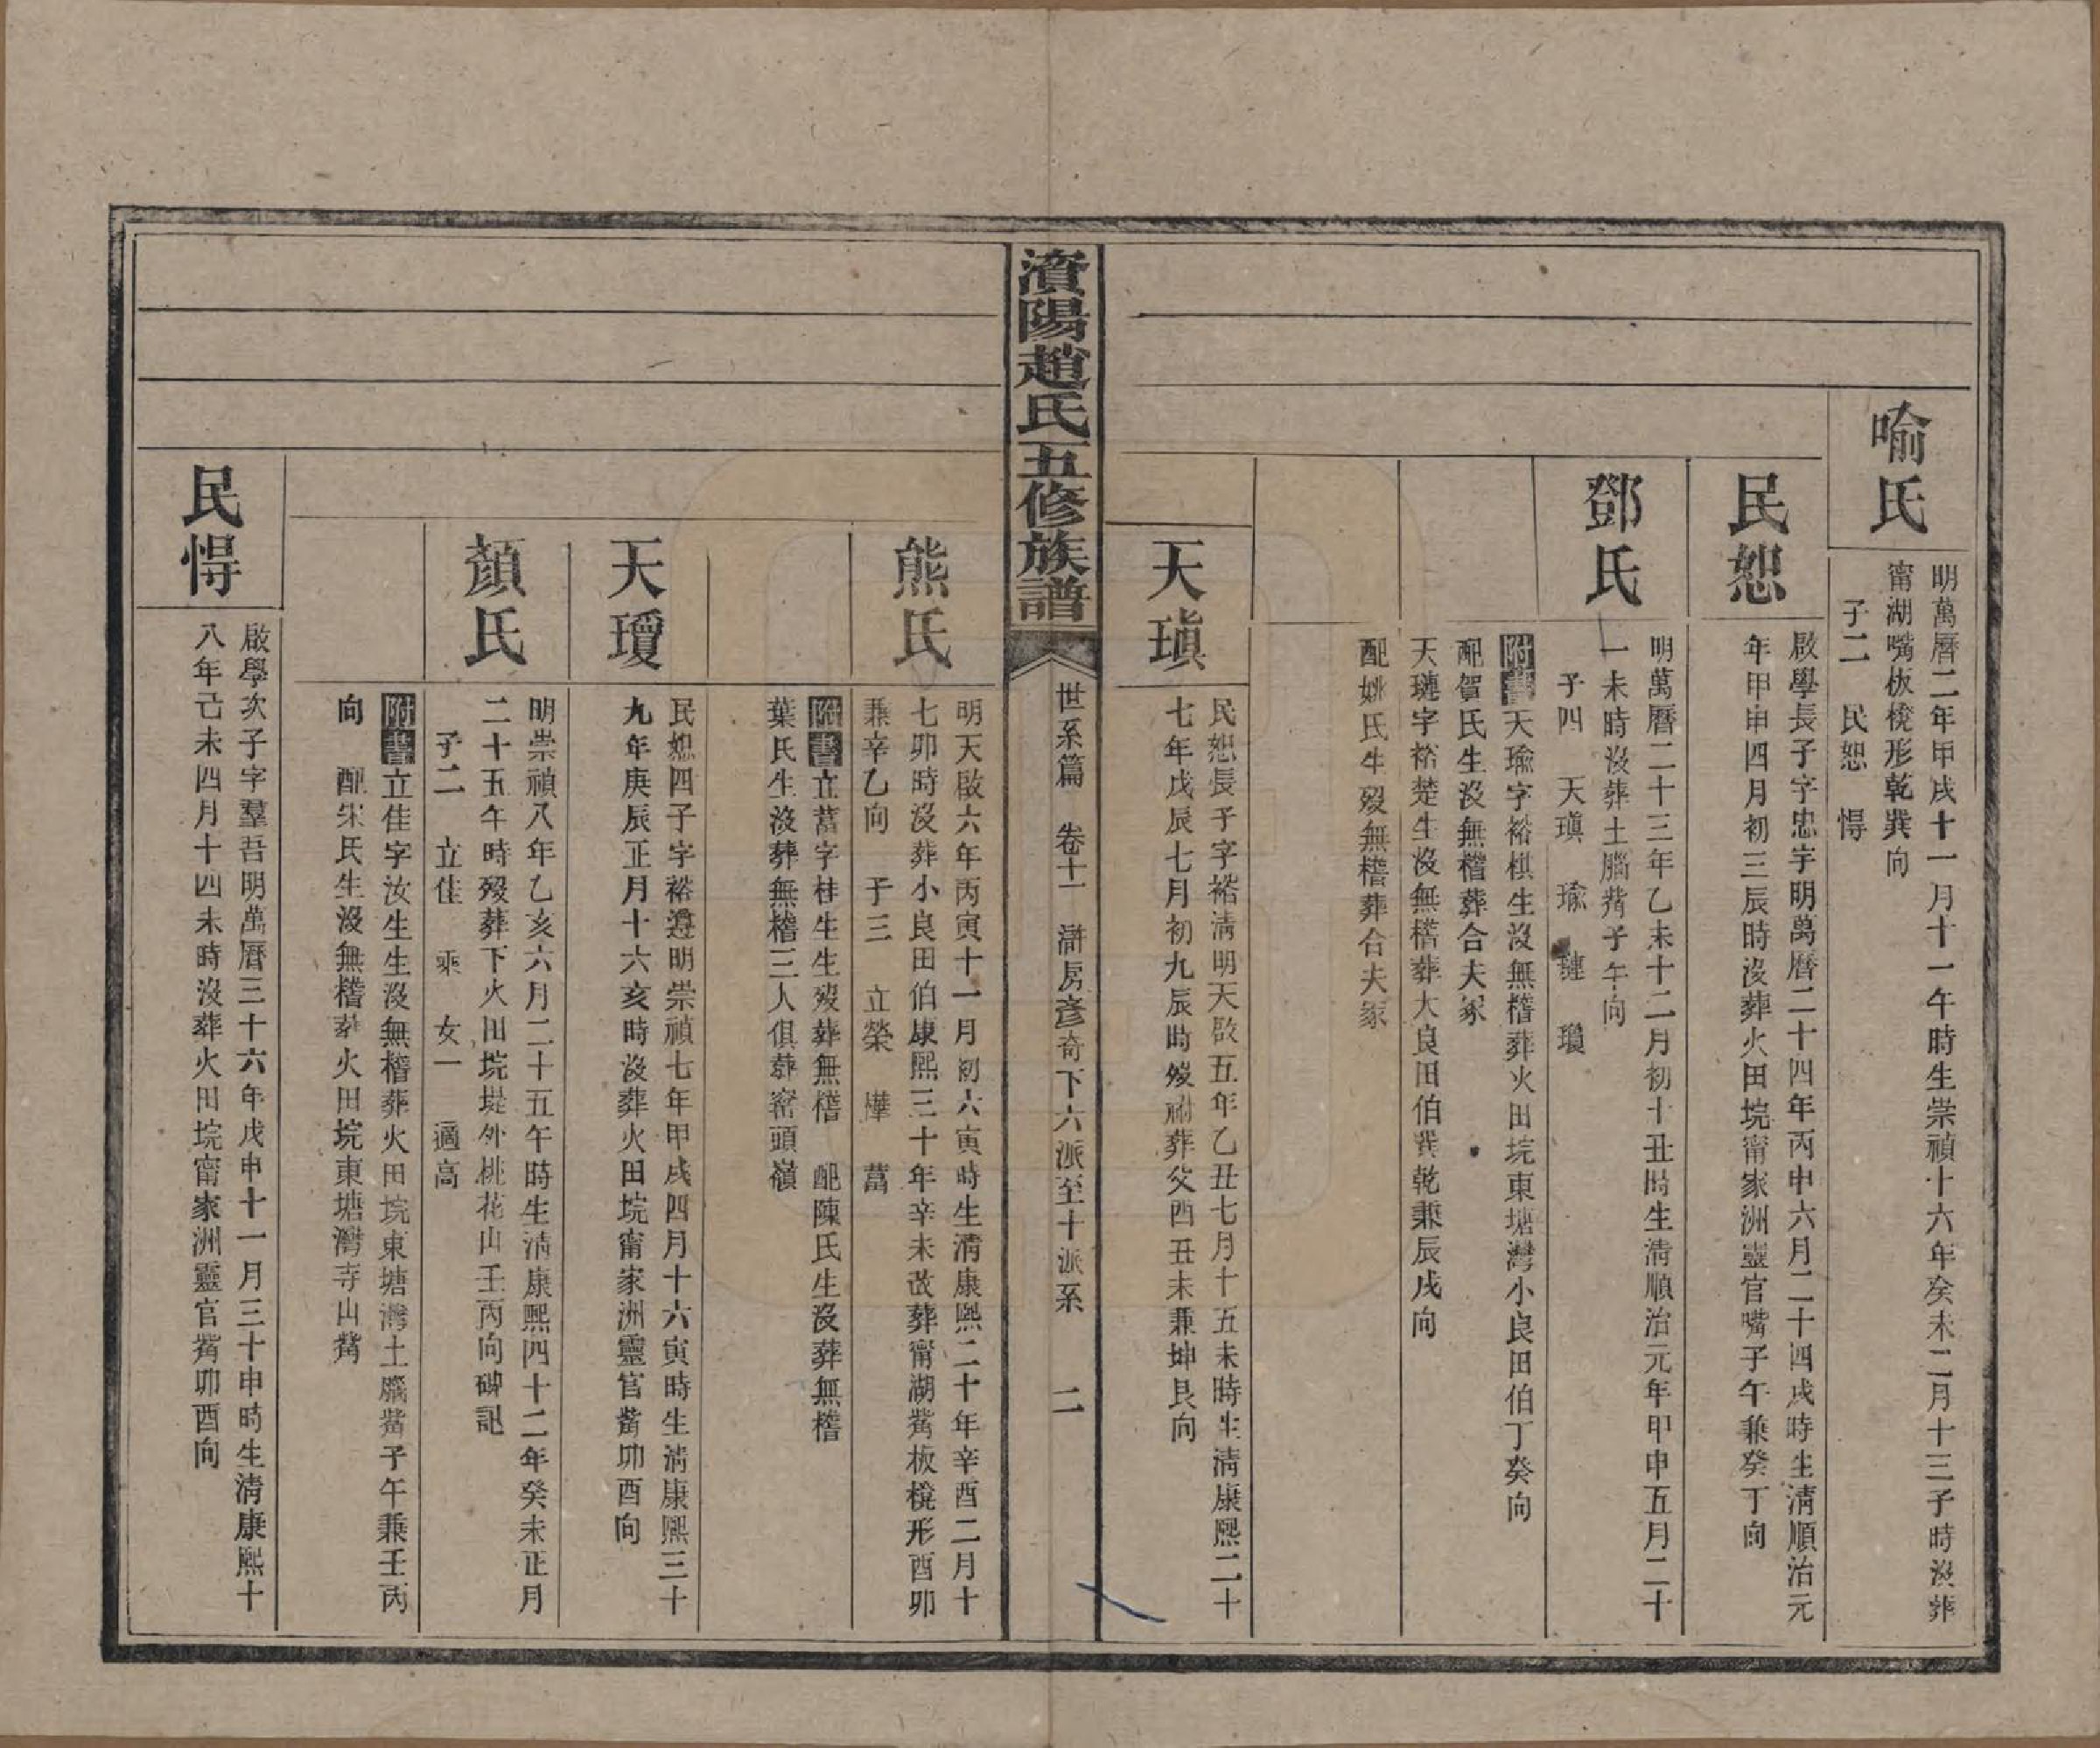 喻氏
明萬曆二年甲戌十一月十一午時生崇禎十六年癸未二月十三子時沒葬
甯湖嘴板櫈形乾巽向
子二　民恕　㥂
民恕
啟學長子字忠宇明萬曆二十四年丙申六月二十四戌時生清順治元
年甲申四月初三辰時沒葬火田垸甯家洲靈官嘴子午兼癸丁向
鄧氏
明萬曆二十三年乙未十二月初十丑時生清順治元年甲申五月二十
一未時沒葬土腦嘴子午向
子四　天瑱　瑜　璉　瓊
附書天瑜字裕棋生沒無稽葬火田垸東塘灣小良田伯丁癸向
配賀氏生沒無稽葬合夫冢
天璉字裕楚生沒無稽葬大良田伯巽乾兼辰戌向
配姚氏生歿無稽葬合夫冢
天瑱
民恕長子字裕清明天啟五年乙丑七月十五未時生清康熙二十
七年戊辰七月初九辰時歿祔葬父酉丑未兼坤艮向
濱陽趙氏五修族譜
世系篇　卷十一　滸房彥奇下六派至十派系　二
熊氏
明天啟六年丙寅十一月初六寅時生清康熙二十年辛酉二月十
七卯時沒葬小良田伯康熙三十年辛未改葬甯湖嘴板櫈形酉卯
兼辛乙向　子三　立榮　樺　菖
附書立菖字桂生生歿葬無稽　配陳氏生沒葬無稽
葉氏生沒葬無稽三人俱葬窑頭嶺
天瓊
民恕四子字裕遵明崇禎七年甲戌四月十六寅時生清康熙三十
九年庚辰正月十六亥時沒葬火田垸甯家洲靈官嘴卯酉向
顏氏
明崇禎八年乙亥六月二十五午時生清康熙四十二年癸未正月
二十五午時歿葬下火田垸堤外桃花山壬丙向碑記
子二　立佳　乘　女一　適高
附書立佳字汝生生沒無稽葬火田垸東塘灣土腦嘴子午兼壬丙
向　配宋氏生沒無稽葬火田垸東塘灣寺山嘴
民㥂
啟學次子字羣吾明萬曆三十六年戊申十一月三十申時生清康熙十
八年己未四月十四未時沒葬火田垸甯家洲靈官嘴卯酉向